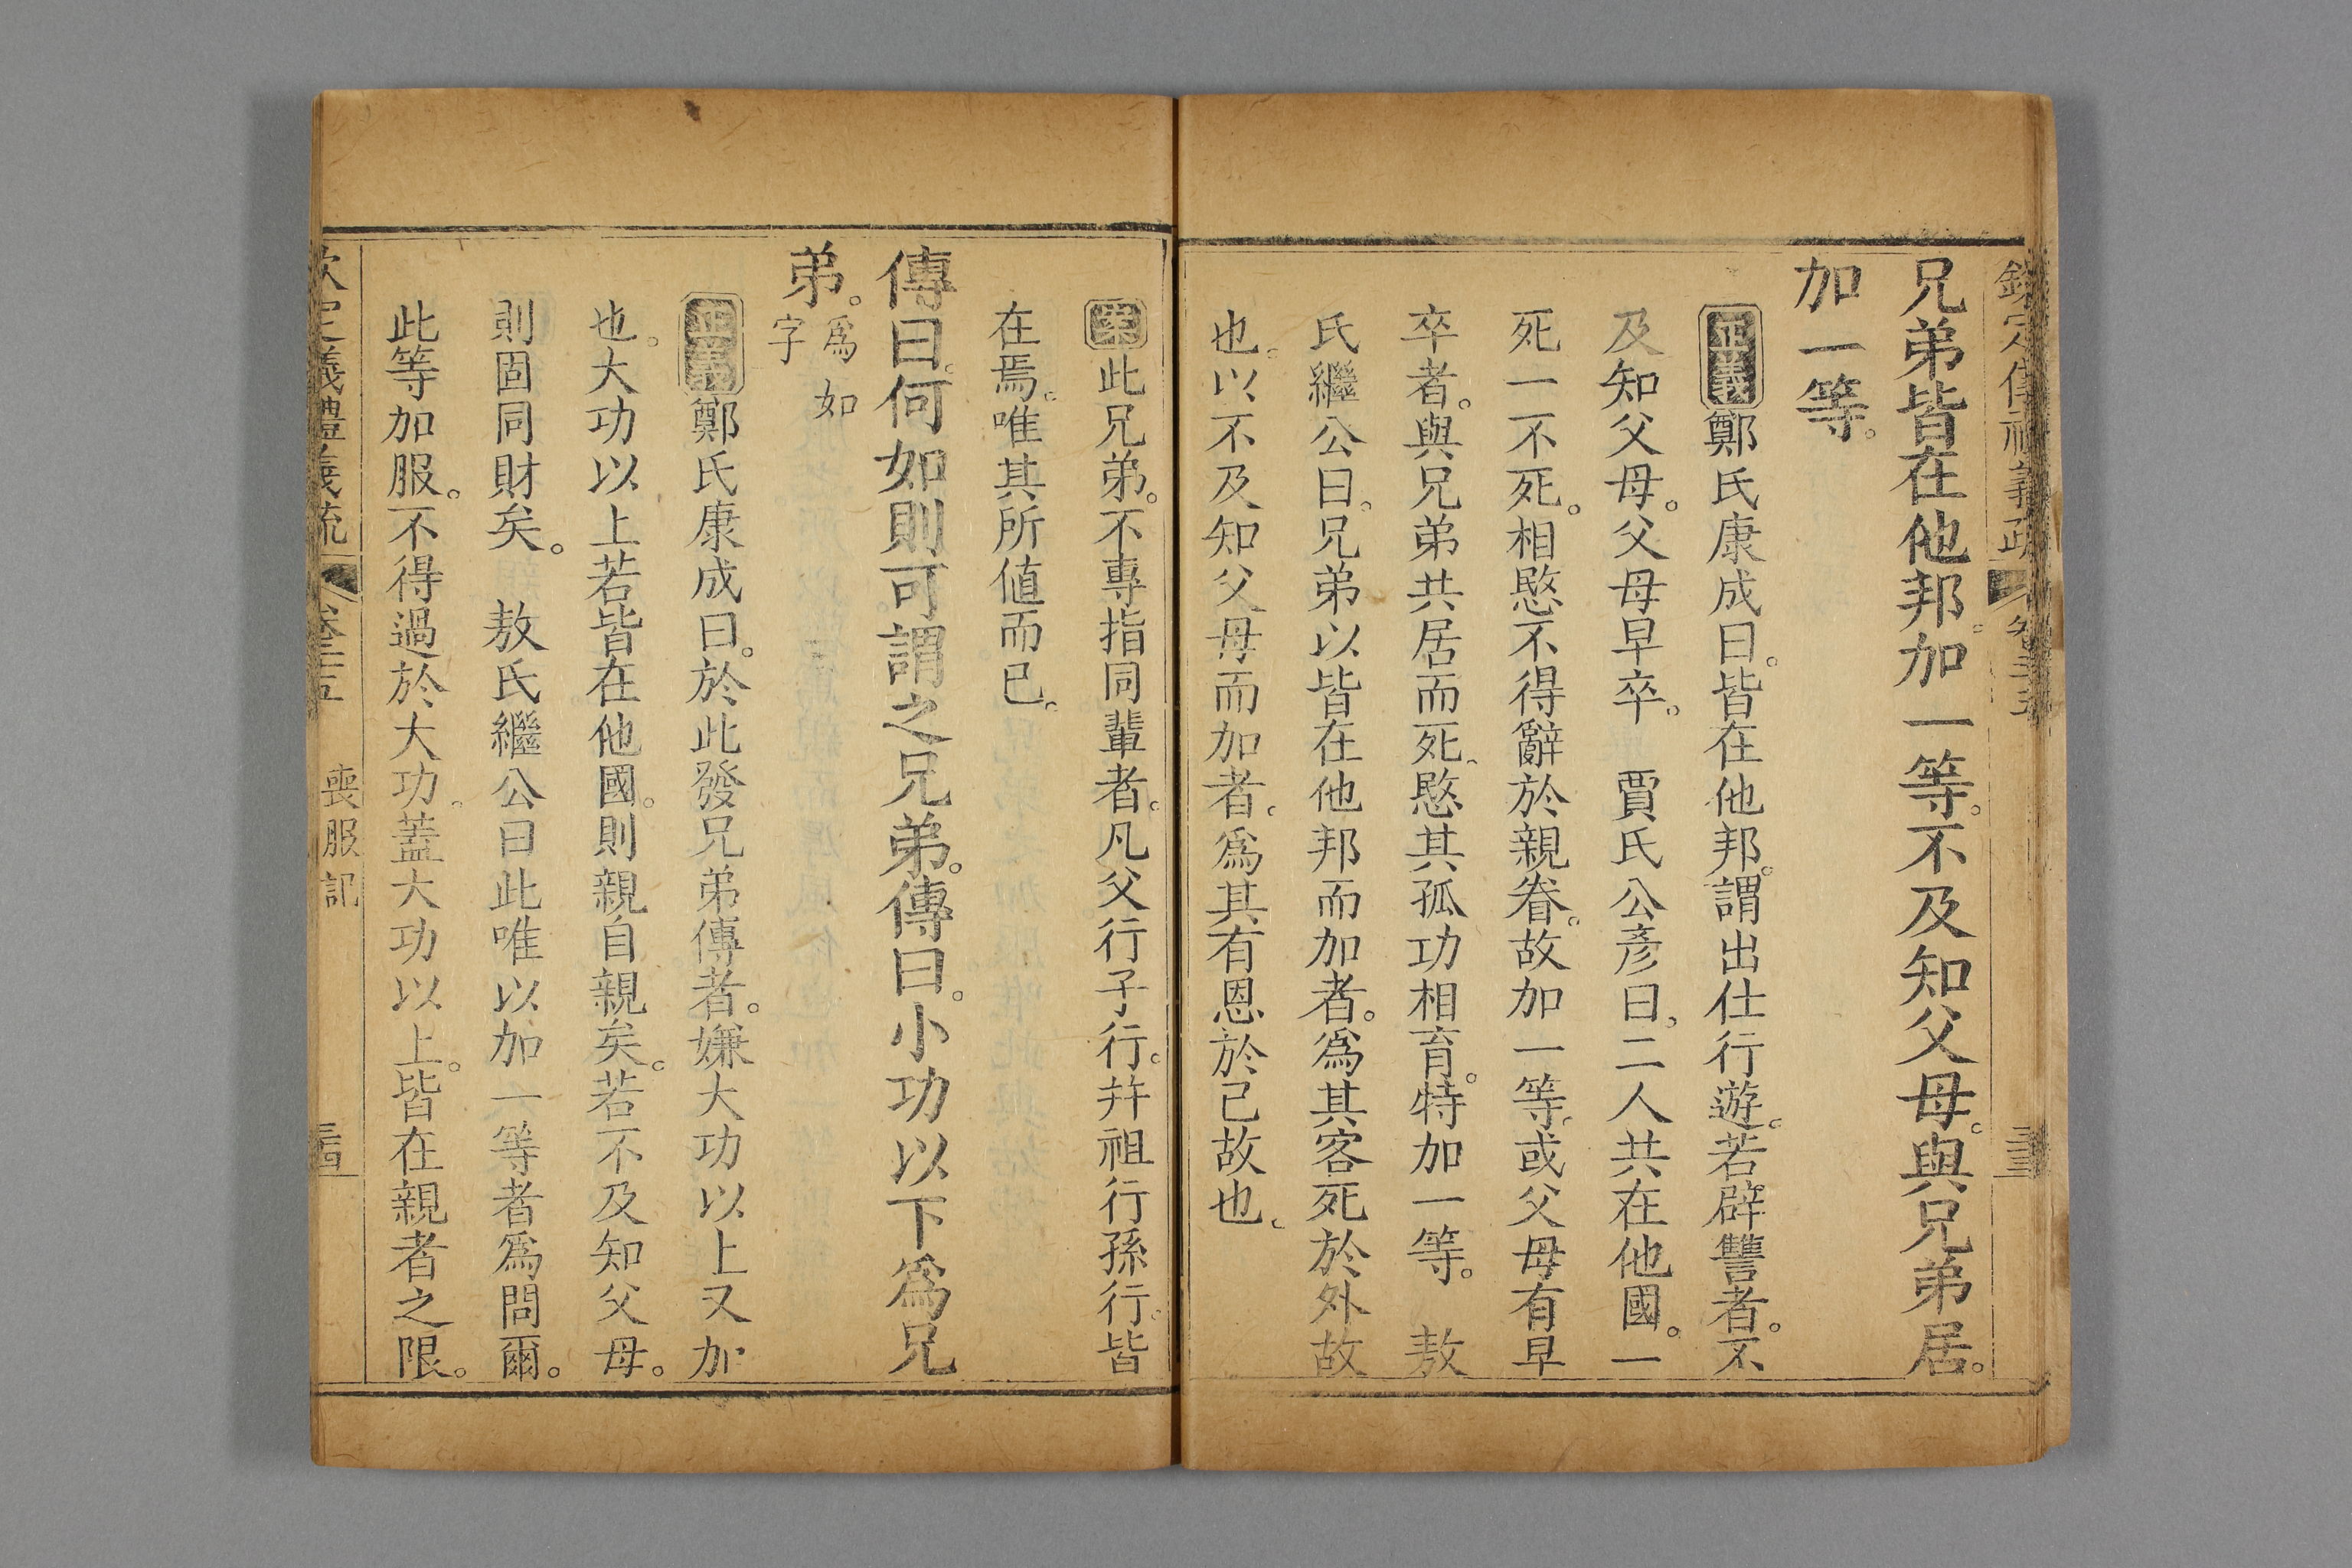 兄弟皆在他邦。加一等。不及知父母。與兄弟居。
加一等。
正義鄭氏康成曰。皆在他邦。謂出仕行遊。若辟讐者。不
及知父母。父母早卒。　賈氏公彥曰。二人共在他國。一
死一不死。相愍不得辭於親眷。故加一等。或父母有早
卒者。與兄弟共居而死。愍其孤功相育。特加一等。　敖
氏繼公曰。兄弟以皆在他邦而加者。爲其客死於外故
也。以不及知父母而加者。爲其有恩於己故也。
案此兄弟。不專指同輩者。凡父行子行。幷祖行孫行。皆
在焉。唯其所値而已。
傳曰。何如則可謂之兄弟。傳曰。小功以下爲兄
弟。爲如
字
正義鄭氏康成曰。於此發兄弟傳者。嫌大功以上又加
也。大功以上若皆在他國。則親自親矣。若不及知父母。
則固同財矣。　敖氏繼公曰此唯以加一等者爲問爾。
此等加服。不得過於大功。蓋大功以上。皆在親者之限。
欽定義禮義疏　卷三十五　喪服記　三四